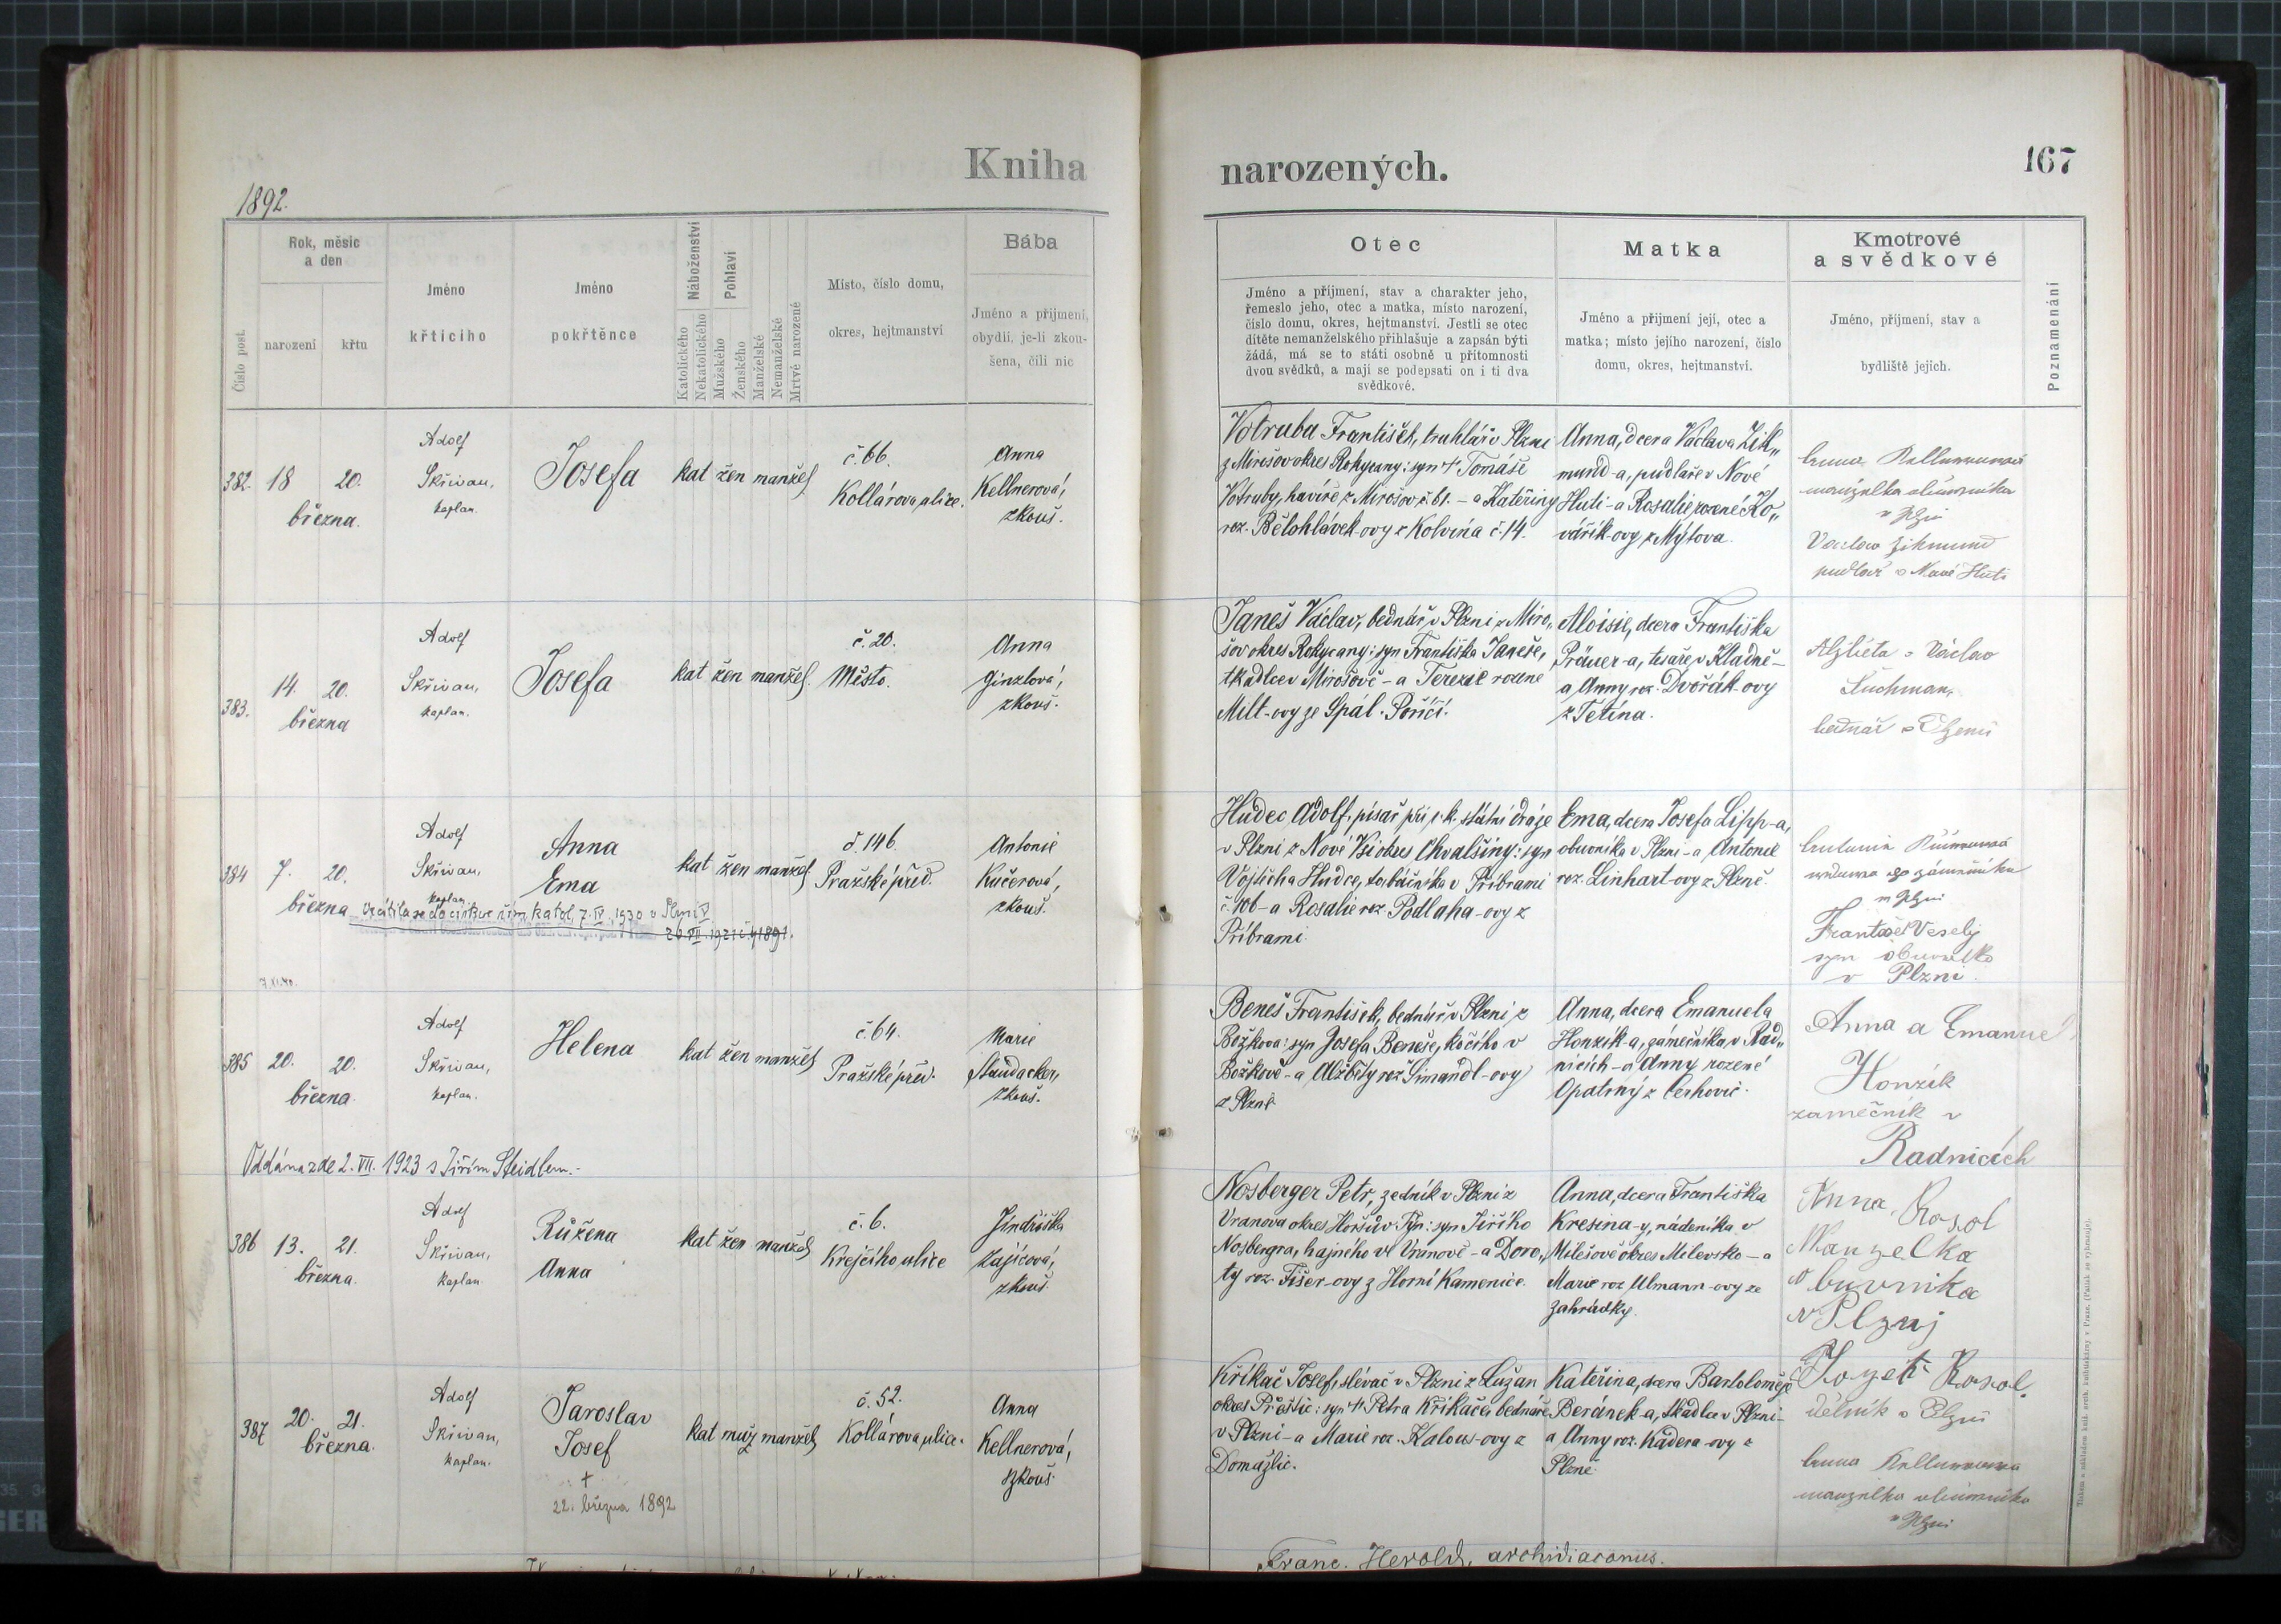 Kniha
narozených.
167
1892.
Číslo post.
Rok, měsíc
a den
narození
křtu
Jméno
křtícího
Jméno
pokřtěnce
Náboženství
Katolického
Nekatolického
Pohlaví
Mužského
Ženského
Manželské
Nemanželské
Mrtvě narozené
Místo, číslo domu,
okres, hejtmanství
Bába
Jméno a příjmení,
obydlí, je-li zkou-
šena, čili nic
Otec
Jméno a příjmení, stav a charakter jeho,
řemeslo jeho, otec a matka, místo narození,
číslo domu, okres, hejtmanství. Jestli se otec
dítěte nemanželského přihlašuje a zapsán býti
žádá, má se to státi osobně u přítomnosti
dvou svědků, a mají se podepsati on i ti dva
svědkové.
Matka
Jméno a příjmení její, otec a
matka; místo jejího narození, číslo
domu, okres, hejtmanství.
Kmotrové
a svědkové
Jméno, příjmení, stav a
bydliště jejich.
Poznamenání
382. 18 20.
března.
Adolf
Skřivan,
kaplan.
Josefa
kat žen manžel
č. 66.
Kollárova ulice.
Anna
Kellnerová,
zkouš.
Votruba František, truhlář v Plzni
z Mirošov okres Rokycany: syn † Tomáše
Votruby, havíře z Mirošov č. 61. – a Kateřiny
roz. Bělohlávek-ovy z Kolvína č. 14.
Anna, dcera Václava Zik„
mund-a, pudlaře v Nové
Huti – a Rosalie rozené Ko„
vářík-ovy z Mýtova.
Anna Kellnerová
manželka
v Plzni
Václav Zikmund
pudlař v Nové Huti
383. 14. 20.
března
Adolf
Skřivan,
kaplan.
Josefa
kat žen manžel.
č. 20.
Město.
Anna
Ginzlová,
zkouš.
Janeš Václav, bednář v Plzni z Miro„
šov okres Rokycany: syn Františka Janeše,
tkadlce v Mirošově – a Terezie rozené
Milt-ovy ze Spál. Poříčí.
Aloisie, dcera Františka
Präuer-a, tesaře v Kladně –
a Anny roz. Dvořák-ovy
z Tetína.
Alžběta a Václav
bednář v Plzni
384 7. 20.
března
Adolf
Skřivan,
kaplan.
Anna
Ema
kat žen manžel.
č. 146.
Pražské před.
Antonie
Kučerová,
zkouš.
Vrátila se do církve řím. katol. 7. IV. 1930 v Plzni V
26. VII. 1921 č. j. 1891.
7. XI. 40.
Hudec Adolf, písař při c. k. státní dráze
v Plzni z Nové Vsi okres Chvalšiny: syn
Vojtěcha Hudce, tobáčníka v Příbrami
č. 106 – a Rosalie roz. Podlaha-ovy z
Příbrami.
Ema, dcera Josefa Lipp-a,
obuvníka v Plzni – a Antonie
roz. Linhart-ovy z Plzně.
Antonie
vdova po zámečníku
v Plzni
František Veselý
syn obuvníka
v Plzni.
385 20. 20.
března.
Adolf
Skřivan,
kaplan.
Helena
kat žen manžel
č. 64.
Pražské před.
Marie
Staudacher,
zkouš.
Oddána zde 2. VII. 1923 s Jiřím Steidlem.-
Beneš František, bednář v Plzni z
Božkova: syn Josefa Beneše, kočího v
Božkově – a Alžběty roz Šimandl-ovy
z Plzně
Anna, dcera Emanuela
Honzík-a, zámečníka, v Rad„
nicích – a Anny rozené
Opatrný z Cerhovic.
Anna a Emanuel
Honzík
zámečník v
Radnicích
386 13. 21.
března.
Adolf
Skřivan,
kaplan.
Růžena
Anna
kat žen manžel
č. 6.
Krejčího ulice
Jindřiška
Zajícová,
zkouš.
Nosberger Petr, zedník v Plzni z
Vranova okres Horšův. Týn: syn Jiřího
Nosbergra, hajného ve Vranově – a Doro„
ty roz. Fišer-ovy z Horní Kamenice.
Anna, dcera Františka
Kresina-y, nádeníka v
Milešově okres Milevsko – a
Marie roz Ulmann-ovy ze
Zahrádky.
Anna Kosol
Manzelka
obuvnika
v Plznj
387 20. 21.
března.
Adolf
Skřivan,
kaplan.
Jaroslav
Josef
†
22. března 1892
kat muž manžel
č. 52.
Kollárova ulice.
Anna
Kellnerová,
zkouš.
Křikač Josef, slévač v Plzni z Lužan
okres Přeštic: syn † Petra Křikače, bednáře
v Plzni – a Marie roz. Kalous-ovy z
Domažlic.
Kateřina, dcera Bartoloměje
Beránek-a, tkadlce v Plzni –
a Anny roz. Kadera-ovy z
Plzně.
Kosol
dělník v Plzni
Anna Kellnerová
manželka
v Plzni
Franc. Herold, archidiaconus.